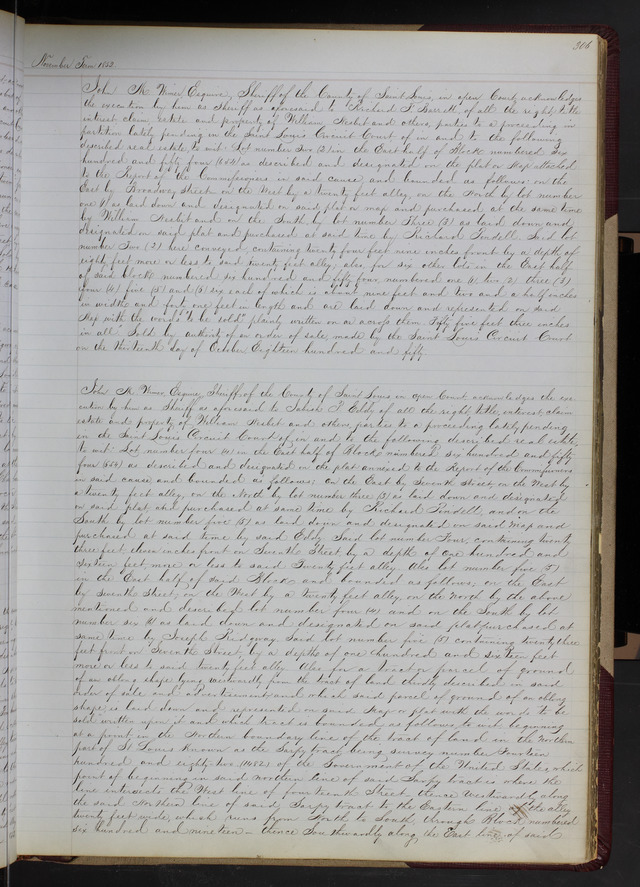 306
November Term 1853
John M. Wimer Esquire, Sheriff of the County of Saint Louis, in open Court, acknowledges
the execution by him as Sheriff as aforesaid to Richard F. Barrett, of all the right, title
interest claim, estate and property of William Nesbit and others, parties to a proceeding in
partition lately pending in the Saint Louis Circuit Court of in and to the following
described real estate to wit: Lot number two (2) in the East half of Block numbered Six
hundred and fifty four (654) as described and designated on the plat or Map attached
to the Report of the Commissioners in said cause and bounded as follows: on the
East by Broadway street on the West by a twenty feet alley, on the North by lot number
one (1) as laid down and designated on said plat or map and purchased at the same time
by William Nesbit and on the South by lot number Three (3) as laid down and
designated on said plat and purchased at said time by Richard Pindell, Said lot
number Two (2) here conveyed, containing twenty four feet nine inches front by a depth of
eighty feet more or less to said twenty feet alley; also, for six other lots in the East half
of said block numbered six hundred and fifty four numbered one (1) two (2) three (3)
four (4) five (5) and (6) six each of which is about nine feet and two and a half inches
in width and forty one feet in length and are laid down and represented on said
Map with the words "to be sold" plainly written on or across them. Fifty five feet three inches
in all. Sold by authority of an order of sale, made by the Saint Louis Circuit Court
on the thirteenth day of October, Eighteen hundred and fifty
John M. Wimer, Esquire, Sheriff of the County of Saint Louis in open Court acknowledges the exe-
cution by him as Sheriff as aforesaid to F. Eddy of all the right, title, interest, claim
estate and property of William Nesbit and others, parties to a proceeding lately pending
in the Saint Louis Circuit Court of, in and to the following described real estate,
to wit: Lot number four (4) in the East half of Block numbered six hundred and fifty
four (654) as described and designated on the plat annexed to the Report of the Commissioners
in said cause and bounded as follows; On the East by Seventh Street, on the West by
a twenty feet alley, on the North by lot number three (3) as laid down and designated
on said plat and purchased at same time by Richard Pindell, and on the
South by lot number five (5) as laid down and designated on said Map and
purchased at said time by said Eddy. Said lot number Four, containing twenty
three feet eleven inches front on Seventh Street by a depth of one hundred and
sixteen feet, more or less to said Twenty feet alley. Also lot number five (5)
in the East half of said Block and bounded as follows; on the East
by Seventh Street, on the West by a twenty feet alley, on the North by the above
mentioned and described lot number four (4) and on the South by lot
number six (6) as laid down and designated on said plat purchased at
same time by Joseph Ridgway. Said lot number five (5) containing twenty three
feet front on Seventh Street, by a depth of one hundred and sixteen feet
more or less to said twenty feet ally. Also for a tract or parcel of ground
of an oblong shape lying westwardly from the tract of land chiefly described in said
order of sale and advertisement, and which said parcel of ground of an oblong
shape, is laid down and represented on said Map or plat with the words "to be
sold" written upon it and which tract is bounded as follows to wit: beginning
at a point in the Northern boundary line of the tract of land in the Northern
part of St Louis known as the Sarpy tract being survey number Fourteen
hundred and eighty two (1482) of the Government of the United States, which
point of beginning in said Northern line of said Sarpy tract is where the
line intersects the West line of fourteenth Street, thence Westwardly along
the said Northern line of said Sarpy tract to the Eastern line of the alley
twenty feet wide, which runs from North to South through Block numbered
six hundred and nineteen - thence Southwardly along the East line of said